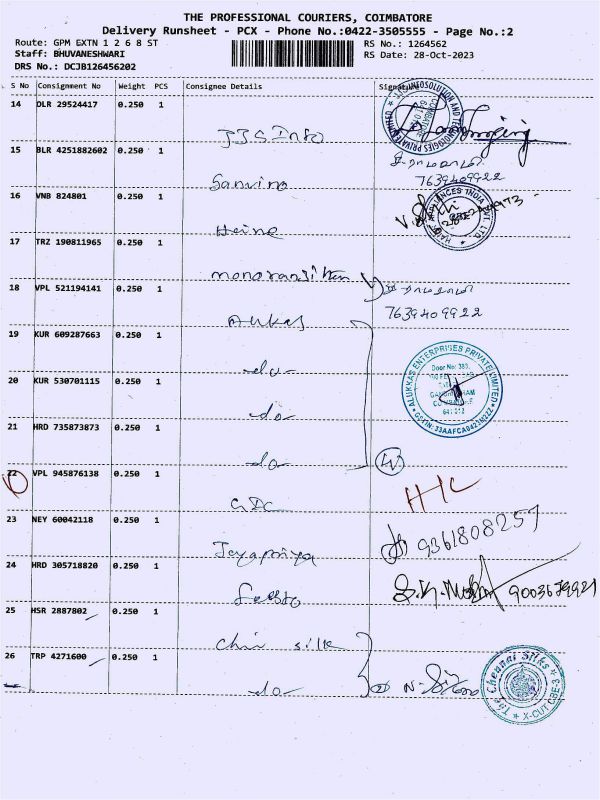 THE PROFESSIONAL COURIERS, COIMBATORE
Delivery Runsheet - PCX - Phone No.:0422-3505555 - Page No.:2
Route: GPM EXTN 1 2 6 8 ST
RS No.: 1264562
Staff: BHUVANESHWARI
RS Date: 28-Oct-2023
DRS No.: DCJB126456202
S No Consignment No Weight PCS Consignee Details Signature
14 DLR 29524417 0.250 1
JJS Info
15 BLR 4251882602 0.250 1
Sanvira
7639409922
16 VNB 824801 0.250 1
Heine
17 TRZ 190811965 0.250 1
18 VPL 521194141 0.250 1
Alukas
7639409922
19 KUR 609287663 0.250 1
-do-
20 KUR 530701115 0.250 1
-do-
ALUKKAS ENTERPRISES PRIVATE LIMITED
Door No: 380,
GSTIN: 33AAFCA0423N2ZZ
21 HRD 735873873 0.250 1
-do-
22 VPL 945876138 0.250 1
GDC
23 NEY 60042118 0.250 1
Jayapriya
9361808257
24 HRD 305718820 0.250 1
9003679921
25 HSR 2887802 0.250 1
Chin silk
26 TRP 4271600 0.250 1
-do-
The Chennai Silks
X-CUT CBE-3